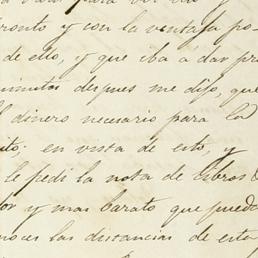 pronto y con la ventaja por
de ello, y que iba á dar pr
minutos despues me dijo, que
l dinero necesario para los
ito: en vista de esto, y
le pedi la nota de libros
or y mas barato que pueda
noces las distancias de esta